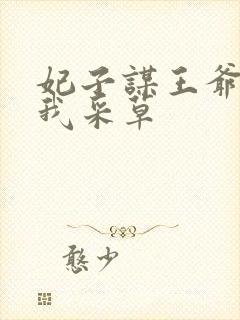 妃子謀王爺
我采草
憨少